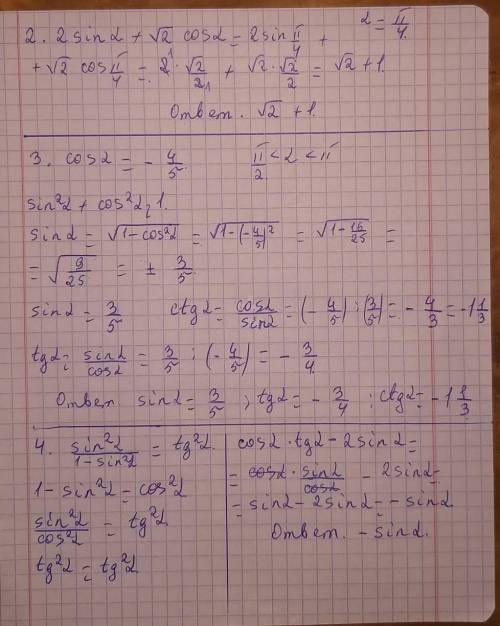 α = π/4
2. 2 sinα + √2 cosα = 2sin π/4 +
+ √2 cos π/4 = 2 · √2/2 + √2 · √2/2 = √2 + 1.
Ответ. √2 + 1.
3. cosα = - 4/5 π/2 < α < π
sin²α + cos²α = 1.
sinα = √(1-cos²α) = √(1-(-4/5)²) = √(1-16/25) =
= √(9/25) = ± 3/5
sinα = 3/5 ctgα = cosα/sinα = (-4/5) : (3/5) = - 4/3 = -1 1/3
tgα = sinα/cosα = 3/5 : (-4/5) = - 3/4
Ответ. sinα = 3/5 ; tgα = - 3/4 ; ctgα = -1 1/3
4. sin²α/(1-sin²α) = tg²α.
1 - sin²α = cos²α
sin²α/cos²α = tg²α.
tg²α = tg²α.
cosα · tgα - 2sinα =
= cosα · sinα/cosα - 2sinα =
= sinα - 2sinα = - sinα
Ответ. - sinα.